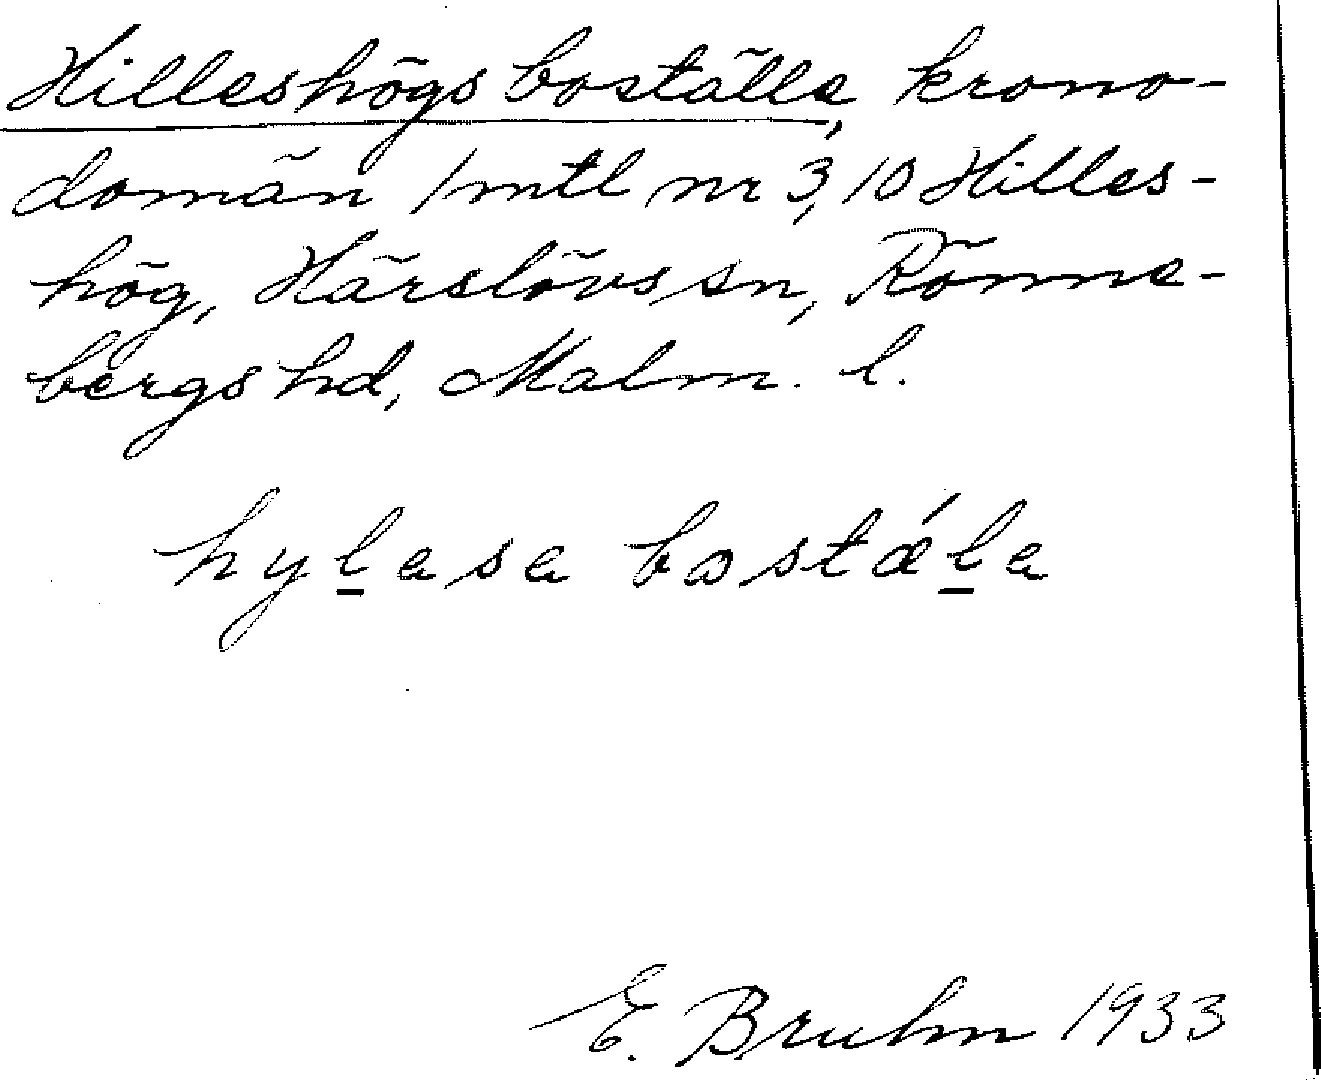 Hilleshögs boställe, krono-
domän 1 mtl nr 3, 10 Hilles-
hög, Härslövs sn, Rönne-
bergs hd, Malm. l.
hylasa bastála
E. Bruhn 1933